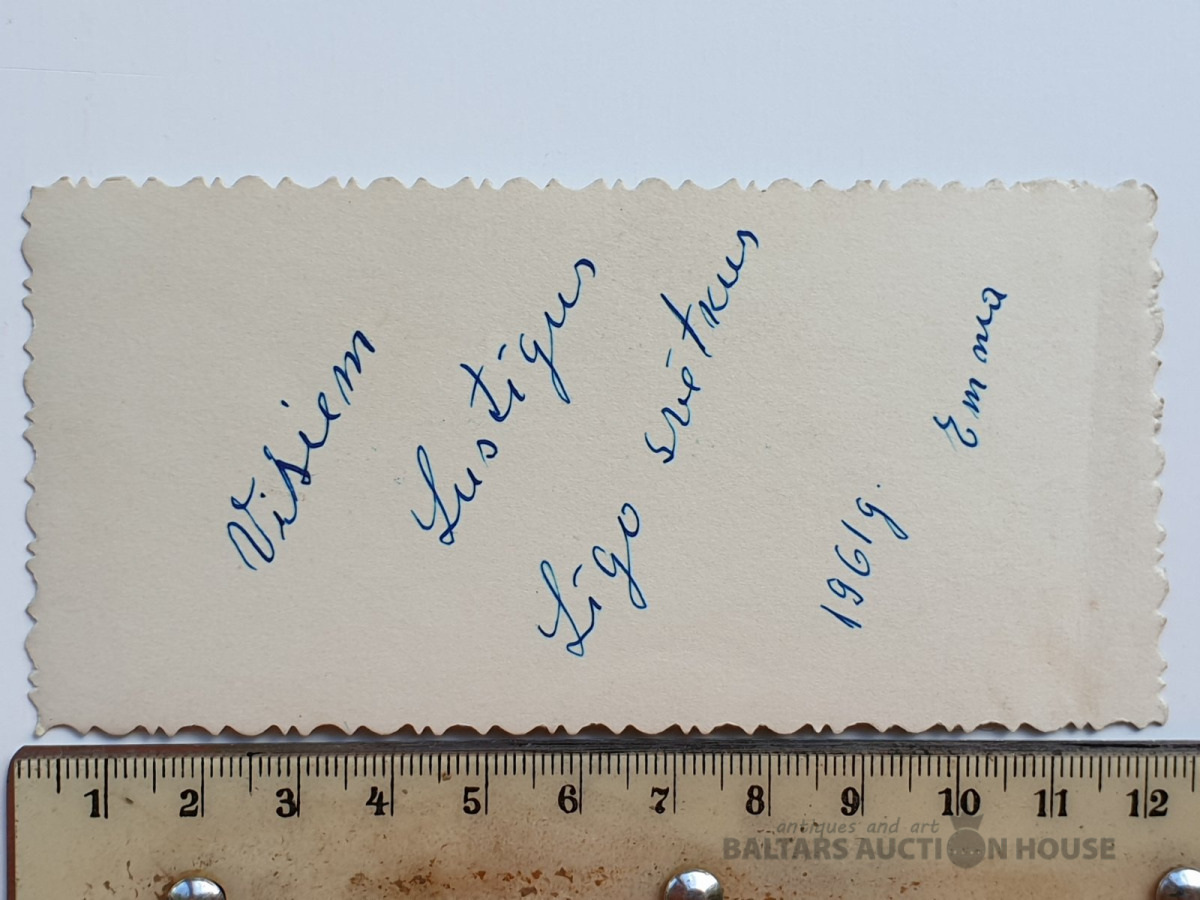 Visiem
Lustīgus
Līgo svētkus
1961g.
Emma
1 2 3 4 5 6 7 8 9 10 11 12
antiques and art
BALTARS AUCTION HOUSE